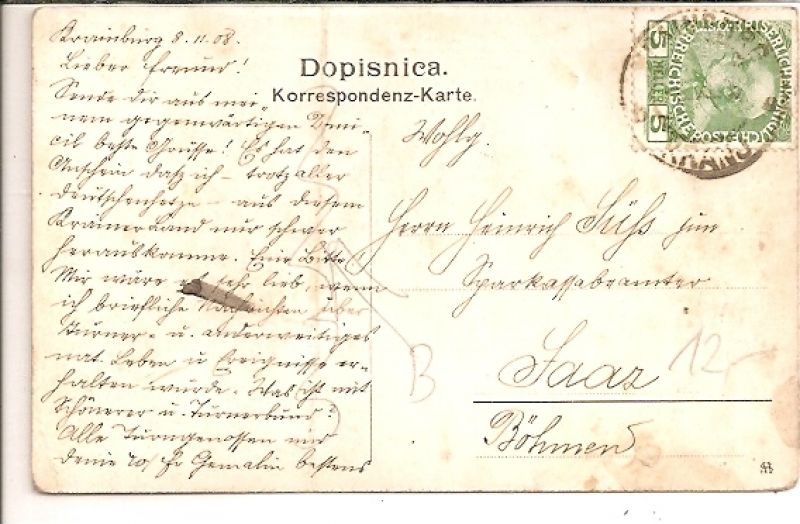 Krainburg 8.11.08.
Lieber Freund!
Sende dir aus mei-
nem gegenwärtigen Domi-
cil beste Grüsse! Es hat den
Anschein dasz ich - trotz aller
Deutschenhetze - aus diesem
Krainerland nur schwer
herauskomme. Eine Bitte!
Mir wäre es sehr lieb, wenn
ich briefliche Nachrichten über
Turner- u. anderweitiges
nat. Leben u Ereignisse er-
halten würde. Was ist mit
Schönerer u. Turnerbund?
Alle Turngenossen und
Gemalin bestens
Dopisnica.
Korrespondenz-Karte.
Wohlg.
Herrn Heinrich Süss jun
Sparkassabeamter
Saaz
Böhmen
12-
B
5 HELLER 5
KRANJ